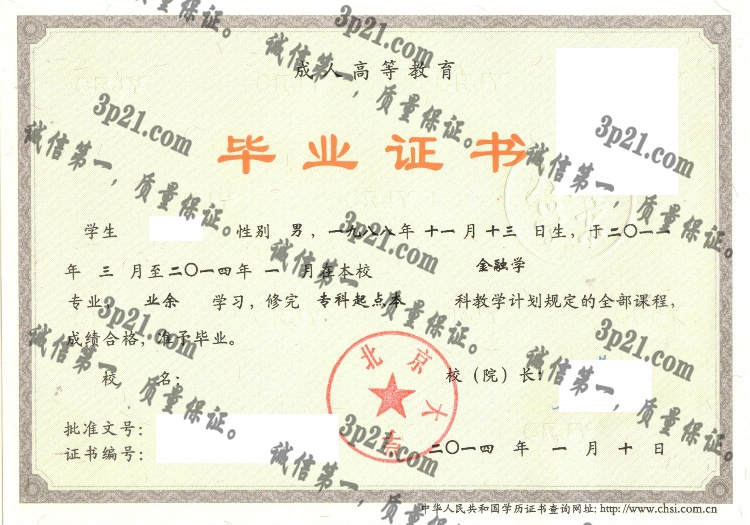 成人高等教育
毕业证书
学生 性别 男，一九八八年 十一月 十三 日生，于二〇一一
年 三 月至二〇一四年 一 月在本校 金融学
专业 业余 学习，修完 专科起点本 科教学计划规定的全部课程，
成绩合格，准予毕业。
校 名： 校（院）长：
北京大学
批准文号：
证书编号： 二〇一四 年 一 月 十 日
中华人民共和国学历证书查询网址: http://www.chsi.com.cn
3p21.com
诚信第一，质量保证。
3p21.com
诚信第一，质量保证。
3p21.com
诚信第一，质量保证。
3p21.com
诚信第一，质量保证。
3p21.com
诚信第一，质量保证。
3p21.com
诚信第一，质量保证。
3p21.com
诚信第一，质量保证。